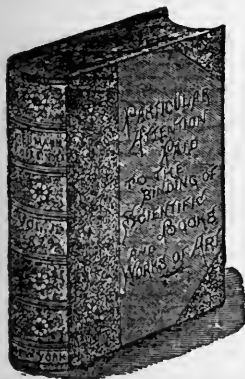 NEW YORK
PARTICULAR
ATTENTION
PAID
TO THE
BINDING OF
SCIENTIFIC
BOOKS
AND
WORKS OF ART